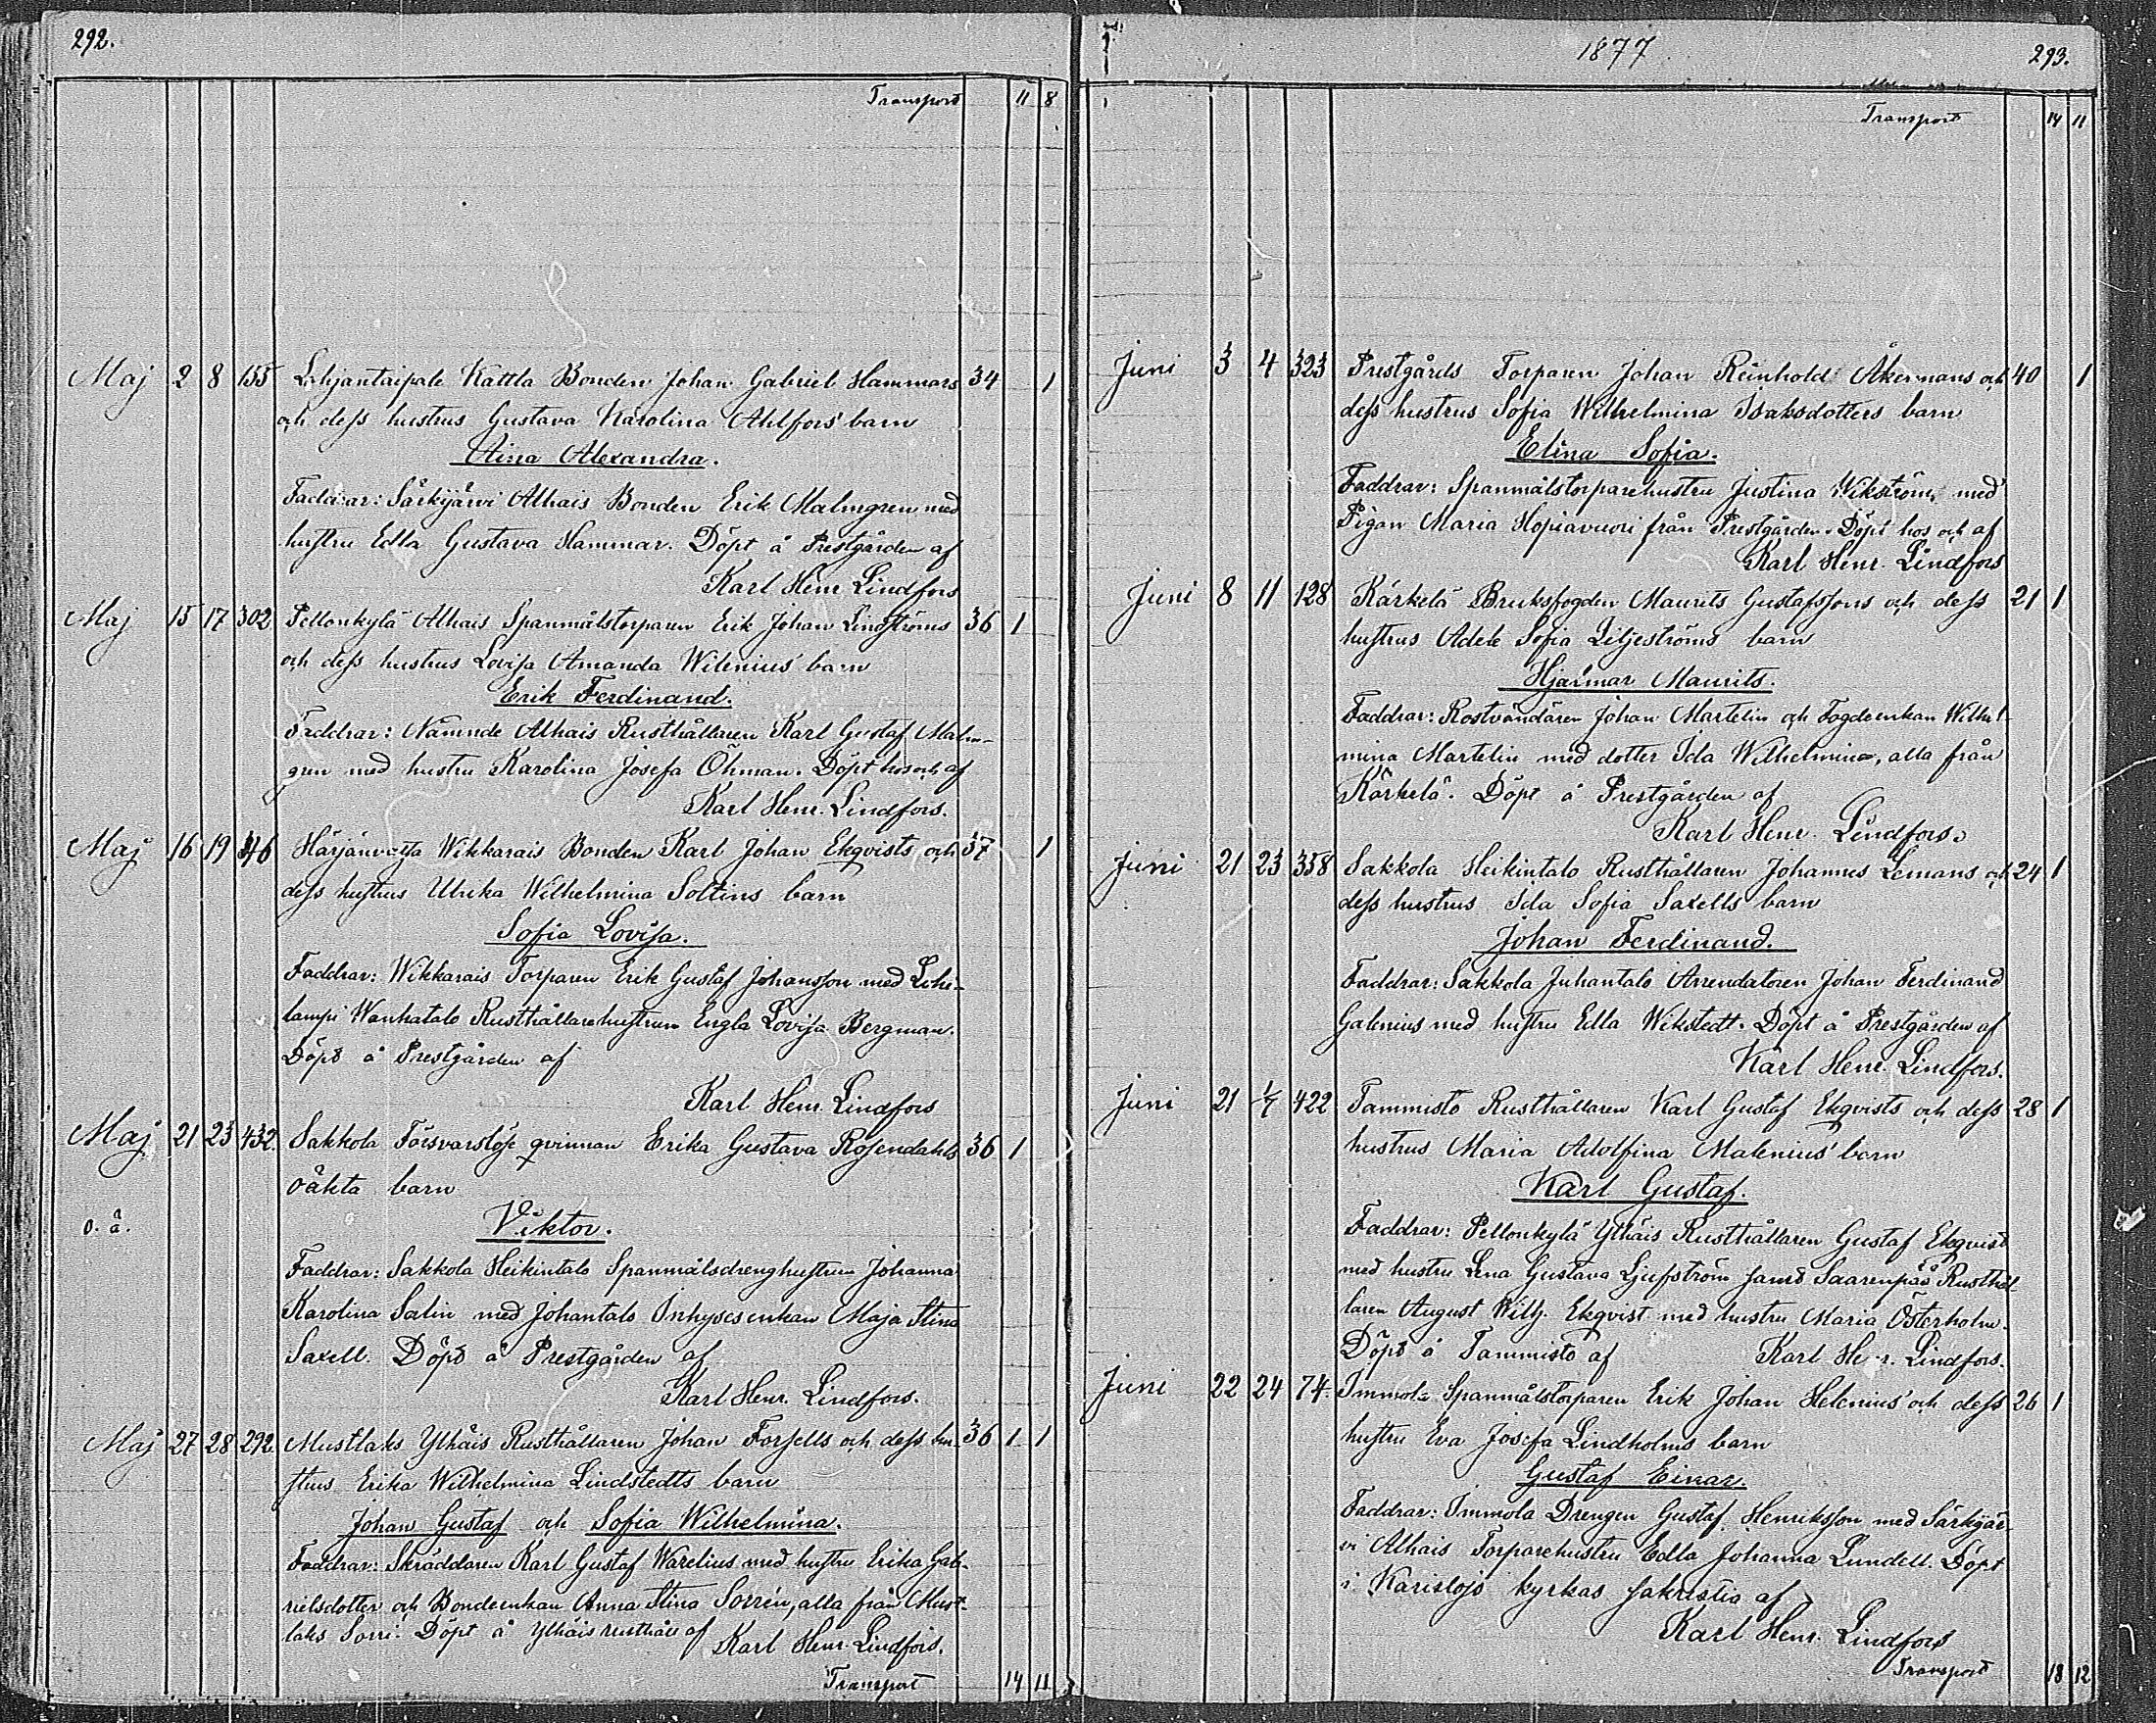 292.
Transport 11 8
Maj 2 8 155 Lohjantaipale Kattla Bonden Johan Gabriel Hammars 34 1
och dess hustrus Gustava Karolina Ahlfors' barn
Aina Alexandra.
Faddrar: Särkijärvi Alhais Bonden Erik Malmgren med
hustru Edla Gustava Hammar. Döpt å Prestgården af
Karl Henr Lindfors
Maj 15 17 302 Pellonkylä Alhais Spanmålstorparen Erik Johan Lindströms 36 1
och dess hustrus Lovisa Amanda Wilenius' barn
Erik Ferdinand.
Faddrar: Nämnde Alhais Rusthållaren Karl Gustaf Malm-
gren med hustru Karolina Josefa Öhman. Döpt hos och af
Karl Henr. Lindfors.
Maj 16 19 Härjänvatsa Wikkarais Bonden Karl Johan Ekqvists och 37 1
dess hustrus Ulrika Wilhelmina Soltins barn
Sofia Lovisa.
Faddrar: Wikkarais Torparen Erik Gustaf Johansson med Lohi-
lampi Wanhatalo Rusthållarehustrun Engla Lovisa Bergman.
Döpt å Prestgården af
Karl Henr. Lindfors
Maj 21 23 432. Sakkola Försvarslöse qvinnan Erika Gustava Rosendahls 36 1
oäkta barn
o. ä. Viktor.
Faddrar: Sakkola Heikintalo Spanmålsdrenghustrun Johanna
Karolina Salin med Johantalo Inhysesenkan Maja Stina
Saxell. Döpt å Prestgården af
Karl Henr. Lindfors.
Maj 27 28 292 Mustlaks Ylhäis Rusthållaren Johan Forsells och dess hu- 36 1 1
strus Erika Wilhelmina Lindstedts barn
Johan Gustaf och Sofia Wilhelmina.
Faddrar: Skräddaren Karl Gustaf Warelius med hustru Erika Gab-
rielsdotter och Bondeenkan Anna Stina Sorrén, alla från Must-
laks Sorri. Döpt å Ylhäis rusthåll af Karl Henr. Lindfors.
Transport 14 11
1877 293.
Transport 14 11
Juni 3 4 323 Prestgårds Torparen Johan Reinhold Åkermans och 40 1
dess hustrus Sofia Wilhelmina Isaksdotters barn
Elina Sofia.
Faddrar: Spanmålstorparehustru Justina Wikström med
Pigan Maria Hopiavuori från Prestgården. Döpt hos och af
Karl Henr. Lindfors
Juni 8 11 128 Kärkelä Bruksfogden Maurits Gustafssons och dess 21 1
hustrus Adele Sofia Liljeströms barn
Hjalmar Maurits.
Faddrar: Rostvändaren Johan Martelin och Fogdeenkan Wilhel-
mina Martelin med dotter Ida Wilhelmina, alla från
Kärkelä. Döpt å Prestgården af
Karl Henr. Lindfors.
Juni 21 23 358 Sakkola Heikintalo Rusthållaren Johannes Lemans och 24 1
dess hustrus Ida Sofia Saxells barn
Johan Ferdinand.
Faddrar: Sakkola Juhantalo Arrendatoren Johan Ferdinand
Galenius med hustru Edla Wikstedt. Döpt å Prestgården af
Karl Henr. Lindfors.
Juni 21 1/7 422 Tammisto Rusthållaren Karl Gustaf Ekqvists och dess 28 1
hustrus Maria Adolfina Malenius' barn
Karl Gustaf.
Faddrar: Pellonkylä Ylhäis Rusthållaren Gustaf Ekqvist
med hustru Lena Gustava Ljufström samt Saarenpää Rusthål-
laren August Wilh. Ekqvist med hustru Maria Österholm.
Döpt å Tammisto af Karl Henr. Lindfors.
Juni 22 24 74. Immola Spanmålstorparen Erik Johan Helenius' och dess 26 1
hustru Eva Josefa Lindholms barn
Gustaf Einar.
Faddrar: Immola Drengen Gustaf Henriksson med Särkijär-
vi Alhais Torparehustru Edla Johanna Lundell. Döpt
i Karislojo kyrkas sakristia af
Karl Henr. Lindfors
Transport 18 12